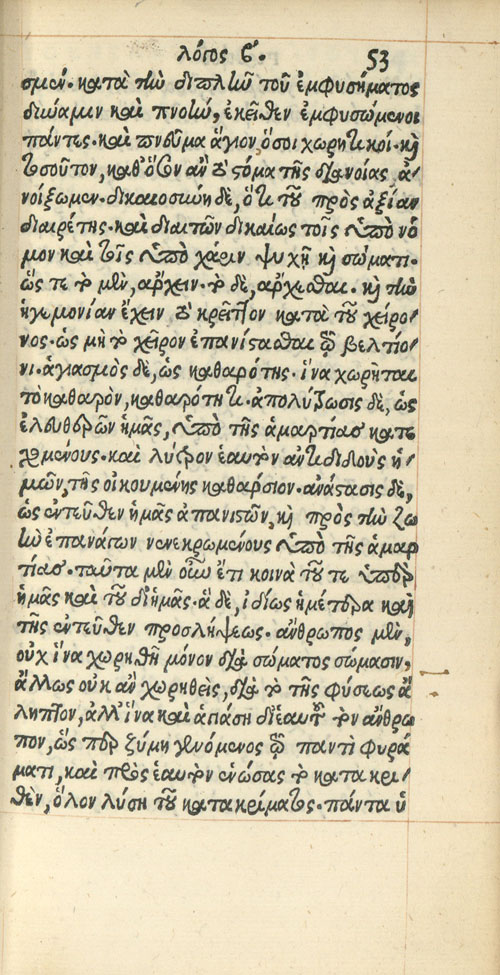 λόγος ϛ´. 53
σμεν. κατὰ τὴν διπλὴν τοῦ ἐμφυσήματος
δύναμιν καὶ πνοὴν, ἐκεῖθεν ἐμφυσώμενοι
πάντες. καὶ πνεῦμα ἅγιον, ὅσοι χωρητικοί. κὴ
τοσοῦτον, καθ' ὅσον ἂν τὸ στόμα τῆς διανοίας ἀ-
νοίξωμεν. δικαιοσύνη δὲ, ὅτι τοῦ πρὸς ἀξίαν
διαιρέτης. καὶ διαιτῶν δικαίως τοῖς ὑπὸ νό
μον καὶ τοῖς ὑπὸ χάριν ψυχῇ κὴ σώματι.
ὥς τε τὸ μὲν, ἄρχειν. τὸ δὲ, ἄρχεσθαι. κὴ τὴν
ἡγεμονίαν ἔχειν τὸ κρεῖττον κατὰ τοῦ χείρο-
νος. ὡς μὴ τὸ χεῖρον ἐπανίστασθαι τῷ βελτίο-
νι. ἁγιασμὸς δὲ, ὡς καθαρότης. ἵνα χωρῆται
τὸ καθαρὸν, καθαρότητι. ἀπολύτρωσις δὲ, ὡς
ἐλευθερῶν ἡμᾶς, ὑπὸ τῆς ἁμαρτίας κατε
χομένους. καὶ λύτρον ἑαυτὸν ἀντιδιδοὺς ἡ-
μῶν, τῆς οἰκουμένης καθάρσιον. ἀνάστασις δὲ,
ὡς ἐντεῦθεν ἡμᾶς ἀπανιστῶν, κὴ πρὸς τὴν ζω
ὴν ἐπανάγων νενεκρωμένους ὑπὸ τῆς ἁμαρ
τίας. ταῦτα μὲν οὖν ἔτι κοινὰ τοῦ τε ὑπὲρ
ἡμᾶς καὶ τοῦ δι' ἡμᾶς. ἃ δὲ, ἰδίως ἡμέτερα καὶ
τῆς ἐντεῦθεν προσλήψεως. ἄνθρωπος μὲν,
οὐχ ἵνα χωρηθῇ μόνον διὰ σώματος σώμασιν,
ἄλλως οὐκ ἂν χωρηθεὶς, διὰ τὸ τῆς φύσεως ἄ
ληπτον, ἀλλ' ἵνα καὶ ἁγιάσῃ δι' ἑαυτοῦ τὸν ἄνθρω
πον, ὥσπερ ζύμη γενόμενος τῷ παντὶ φυρά
ματι, καὶ πρὸς ἑαυτὸν ἑνώσας τὸ κατακρι-
θὲν, ὅλον λύσῃ τοῦ κατακρίματος. πάντα ὑ